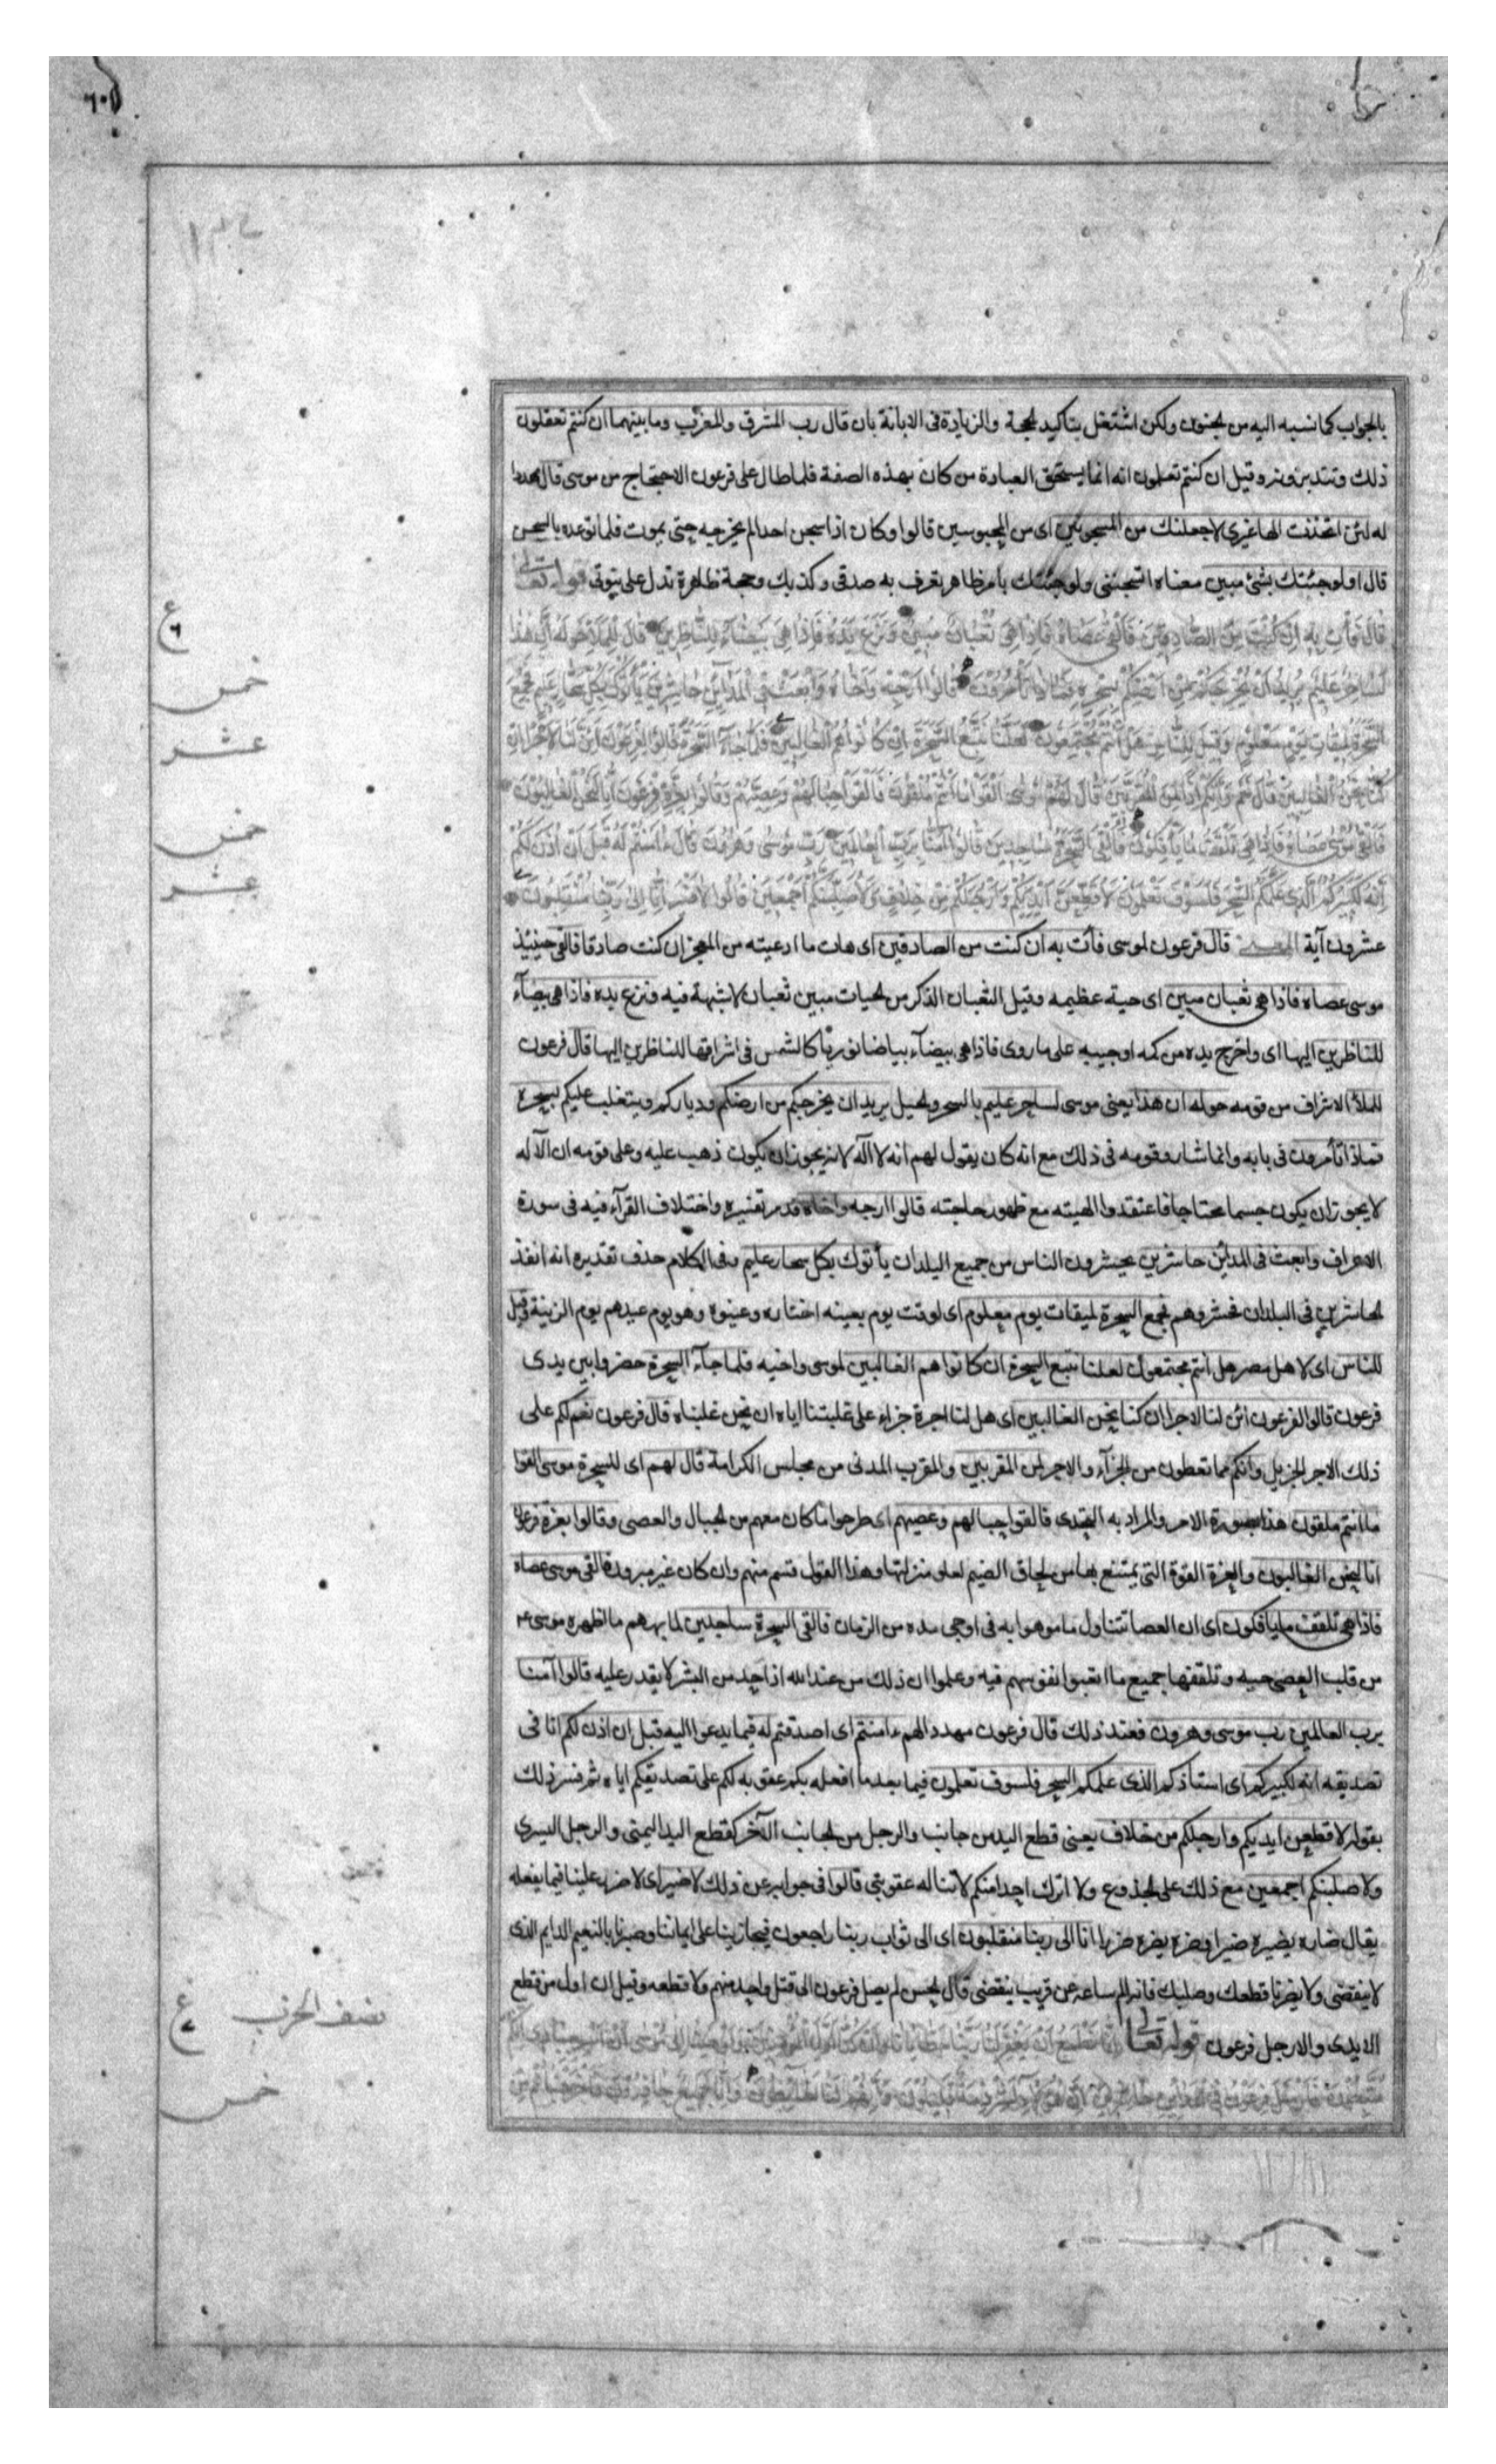 بالجواب كما نسبه اليه من الجنون ولكن اشتغل بتاكيد الحجة والزيادة فى الابانة بان قال رب المشرق والمغرب وما بينهما ان كنتم تعقلون
ذلك وتتدبرونه وقيل ان كنتم تعلمون انه انما يستحق العبادة من كان بهذه الصفة فلما طال على فرعون الاحتجاج من موسى قال مهددا
له لئن اتخذت الها غيرى لاجعلنك من المسجونين اى من المحبوسين قالوا وكان اذا سجن احدا لم يخرجه حتى يموت فلما توعده بالسجن
قال اولو جئتك بشئ مبين معناه اتسجننى ولو جئتك بامر ظاهر تعرف به صدقى وكذبك وحجة ظاهرة تدل على نبوتى قوله تعالى
قَالَ فَأْتِ بِهِ اِنْ كُنْتَ مِنَ الصَّادِقِينَ فَاَلْقٰى عَصَاهُ فَاِذَا هِىَ ثُعْبَانٌ مُبِينٌ وَنَزَعَ يَدَهُ فَاِذَا هِىَ بَيْضَآءُ لِلنَّاظِرِينَ قَالَ لِلْمَلَاِ حَوْلَهُ اِنَّ هٰذَا
لَسَاحِرٌ عَلِيمٌ يُرِيدُ اَنْ يُخْرِجَكُمْ مِنْ اَرْضِكُمْ بِسِحْرِهِ فَمَاذَا تَأْمُرُونَ قَالُوا اَرْجِهْ وَاَخَاهُ وَابْعَثْ فِى الْمَدَآئِنِ حَاشِرِينَ يَأْتُوكَ بِكُلِّ سَحَّارٍ عَلِيمٍ فَجُمِعَ
السَّحَرَةُ لِمِيقَاتِ يَوْمٍ مَعْلُومٍ وَقِيلَ لِلنَّاسِ هَلْ اَنْتُمْ مُجْتَمِعُونَ لَعَلَّنَا نَتَّبِعُ السَّحَرَةَ اِنْ كَانُوا هُمُ الْغَالِبِينَ فَلَمَّا جَآءَ السَّحَرَةُ قَالُوا لِفِرْعَوْنَ اَئِنَّ لَنَا لَاَجْرًا اِنْ
كُنَّا نَحْنُ الْغَالِبِينَ قَالَ نَعَمْ وَاِنَّكُمْ اِذًا لَمِنَ الْمُقَرَّبِينَ قَالَ لَهُمْ مُوسٰى اَلْقُوا مَا اَنْتُمْ مُلْقُونَ فَاَلْقَوْا حِبَالَهُمْ وَعِصِيَّهُمْ وَقَالُوا بِعِزَّةِ فِرْعَوْنَ اِنَّا لَنَحْنُ الْغَالِبُونَ
فَاَلْقٰى مُوسٰى عَصَاهُ فَاِذَا هِىَ تَلْقَفُ مَا يَأْفِكُونَ فَاُلْقِىَ السَّحَرَةُ سَاجِدِينَ قَالُوا اٰمَنَّا بِرَبِّ الْعَالَمِينَ رَبِّ مُوسٰى وَهٰرُونَ قَالَ ءَاٰمَنْتُمْ لَهُ قَبْلَ اَنْ اٰذَنَ لَكُمْ
اِنَّهُ لَكَبِيرُكُمُ الَّذِى عَلَّمَكُمُ السِّحْرَ فَلَسَوْفَ تَعْلَمُونَ لَاُقَطِّعَنَّ اَيْدِيَكُمْ وَاَرْجُلَكُمْ مِنْ خِلَافٍ وَلَاُصَلِّبَنَّكُمْ اَجْمَعِينَ قَالُوا لَا ضَيْرَ اِنَّا اِلٰى رَبِّنَا مُنْقَلِبُونَ
عشرون آية المعنى قال فرعون لموسى فأت به ان كنت من الصادقين اى هات ما ادعيته من المعجز ان كنت صادقا فالقى حينئذ
موسى عصاه فاذا هى ثعبان مبين اى حية عظيمه وقيل الثعبان الذكر من الحيات مبين ثعبان لا شبهة فيه ونزع يده فاذا هى بيضآء
للناظرين اليها اى واخرج يده من كمه او جيبه على ما روى فاذا هى بيضآء بياضا نوريا كالشمس فى اشراقها للناظرين اليها قال فرعون
للملأ الاشراف من قومه حوله ان هذا يعنى موسى لساحر عليم بالسحر والحيل يريد ان يخرجكم من ارضكم ودياركم ويتغلب عليكم بسحره
فماذا تأمرون فى بابه وانما شاور قومه فى ذلك مع انه كان يقول لهم انه لا اله لانه يجوز ان يكون ذهب عليه وعلى قومه ان الآله
لا يجوز ان يكون جسما محتاجا فاعتقدوا الهيته مع ظهور حاجته قالوا ارجه واخاه قد مر تفسيره واختلاف القرآء فيه فى سورة
الاعراف وابعث فى المدائن حاشرين يحشرون الناس من جميع البلدان يأتوك بكل سحار عليم وفى الكلام حذف تقديره انه انفذ
الحاشرين فى البلدان فحشروهم فجمع السحرة لميقات يوم معلوم اى لوقت يوم بعينه اختاره وعينوه وهو يوم عيدهم يوم الزينة وقيل
للناس اى لاهل مصر هل انتم مجتمعون لعلنا نتبع السحرة ان كانوا هم الغالبين لموسى واخيه فلما جآء السحرة حضروا بين يدى
فرعون قالوا لفرعون ائن لنا لاجرا ان كنا نحن الغالبين اى هل لنا اجرة جزاء على غلبتنا اياه ان نحن غلبناه قال فرعون نعم لكم على
ذلك الاجر الجزيل وانكم مما تعطون من الجزآء والاجر لمن المقربين والمقرب المدنى من مجلس الكرامة قال لهم اى للسحرة موسى القوا
ما انتم ملقون هذا بصورة الامر والمراد به التحدى فالقوا حبالهم وعصيهم اى طرحوا ما كان معهم من الحبال والعصى وقالوا بعزة فرعون
انا لنحن الغالبون والعزة القوة التى يمتنع بها من لحاق الضيم لعلو منزلتها وهذا القول قسم منهم وان كان غير مبرور فالقى موسى عصاه
فاذا هى تلقف ما يافكون اى ان العصا تتناول ما موهوا به فى اوحى مده من الزمان فالقى السحرة ساجدين لما بهرهم ما اظهره موسى ع
من قلب العصى حيه وتلقفها جميع ما اتعبوا نفوسهم فيه وعلموا ان ذلك من عند الله اذ احد من البشر لا يقدر عليه قالوا آمنا
برب العالمين رب موسى وهرون فعند ذلك قال فرعون مهددا لهم ءامنتم اى اصدقتم له فيما يدعوا اليه قبل ان اذن لكم انا فى
تصديقه انه لكبيركم اى استاذكم الذى علمكم السحر فلسوف تعلمون فيما بعد ما افعله بكم عقوبه لكم على تصديقكم اياه ثم فسر ذلك
بقوله لاقطعن ايديكم وارجلكم من خلاف يعنى قطع اليد من جانب والرجل من الجانب الآخر كقطع اليد اليمنى والرجل اليسرى
ولاصلبنكم اجمعين مع ذلك على الجذوع ولا اترك احدا منكم لا تناله عقوبتى قالوا فى جوابه عن ذلك لا ضير اى لا ضرر علينا فيما يفعله
يقال ضاره يضيره ضيرا وضره يضره ضررا انا الى ربنا منقلبون اى الى ثواب ربنا راجعون فيجازينا على ايماننا وصبرنا بالنعيم الدايم الذى
لا ينقضى ولا يضرنا قطعك وصلبك فانه الم ساعه عن قريب ينقضى قال الحسن لم يصل فرعون الى قتل واحد منهم ولا قطعه وقيل ان اول من قطع
الايدى والارجل فرعون قوله تعالى اِنَّا نَطْمَعُ اَنْ يَغْفِرَ لَنَا رَبُّنَا خَطَايَانَا اَنْ كُنَّا اَوَّلَ الْمُؤْمِنِينَ وَاَوْحَيْنَا اِلٰى مُوسٰى اَنْ اَسْرِ بِعِبَادِى اِنَّكُمْ
مُتَّبَعُونَ فَاَرْسَلَ فِرْعَوْنُ فِى الْمَدَآئِنِ حَاشِرِينَ اِنَّ هٰؤُلَآءِ لَشِرْذِمَةٌ قَلِيلُونَ وَاِنَّهُمْ لَنَا لَغَآئِظُونَ وَاِنَّا لَجَمِيعٌ حَاذِرُونَ فَاَخْرَجْنَاهُمْ مِنْ
ع
٦
خمس
عشر
خمس
عشر
نصف الحزب
ع
خمس